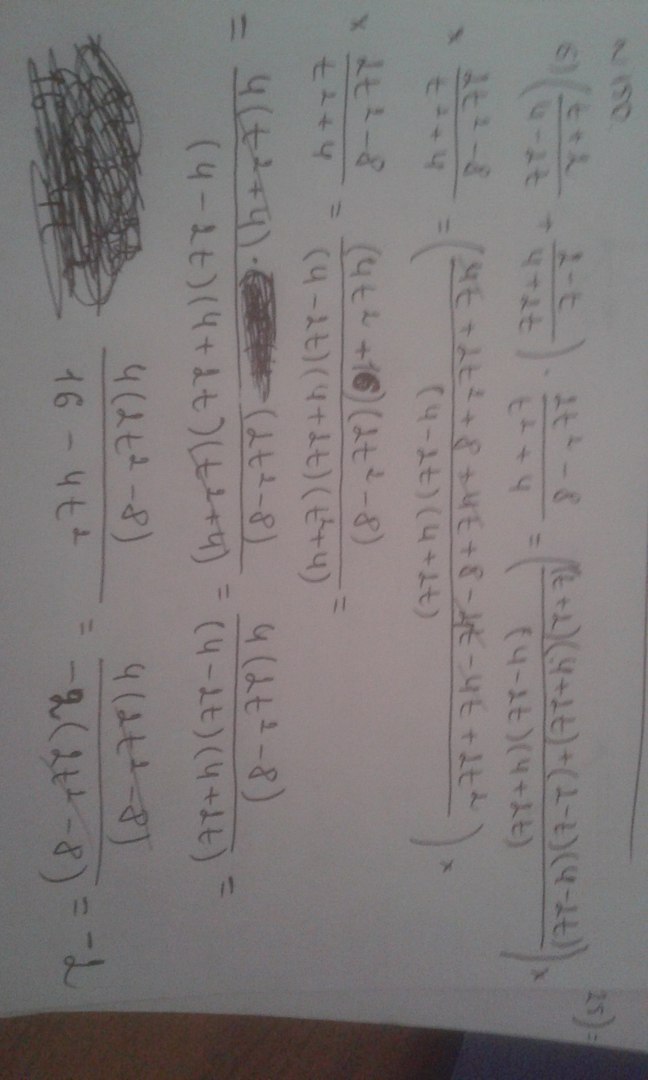 N 150
б) ((t+2)/(4-2t) + (2-t)/(4+2t)) · (2t²-8)/(t²+4) = (((t+2)(4+2t)+(2-t)(4-2t))/((4-2t)(4+2t))) ×
× (2t²-8)/(t²+4) = ((4t+2t²+8+4t+8-4t-4t+2t²)/((4-2t)(4+2t))) ×
× (2t²-8)/(t²+4) = ((4t²+16)(2t²-8))/((4-2t)(4+2t)(t²+4)) =
= (4(t²+4)·(2t²-8))/((4-2t)(4+2t)(t²+4)) = (4(2t²-8))/((4-2t)(4+2t)) =
(4(2t²-8))/(16-4t²) = (4(2t²-8))/(-2(2t²-8)) = -2
25)=